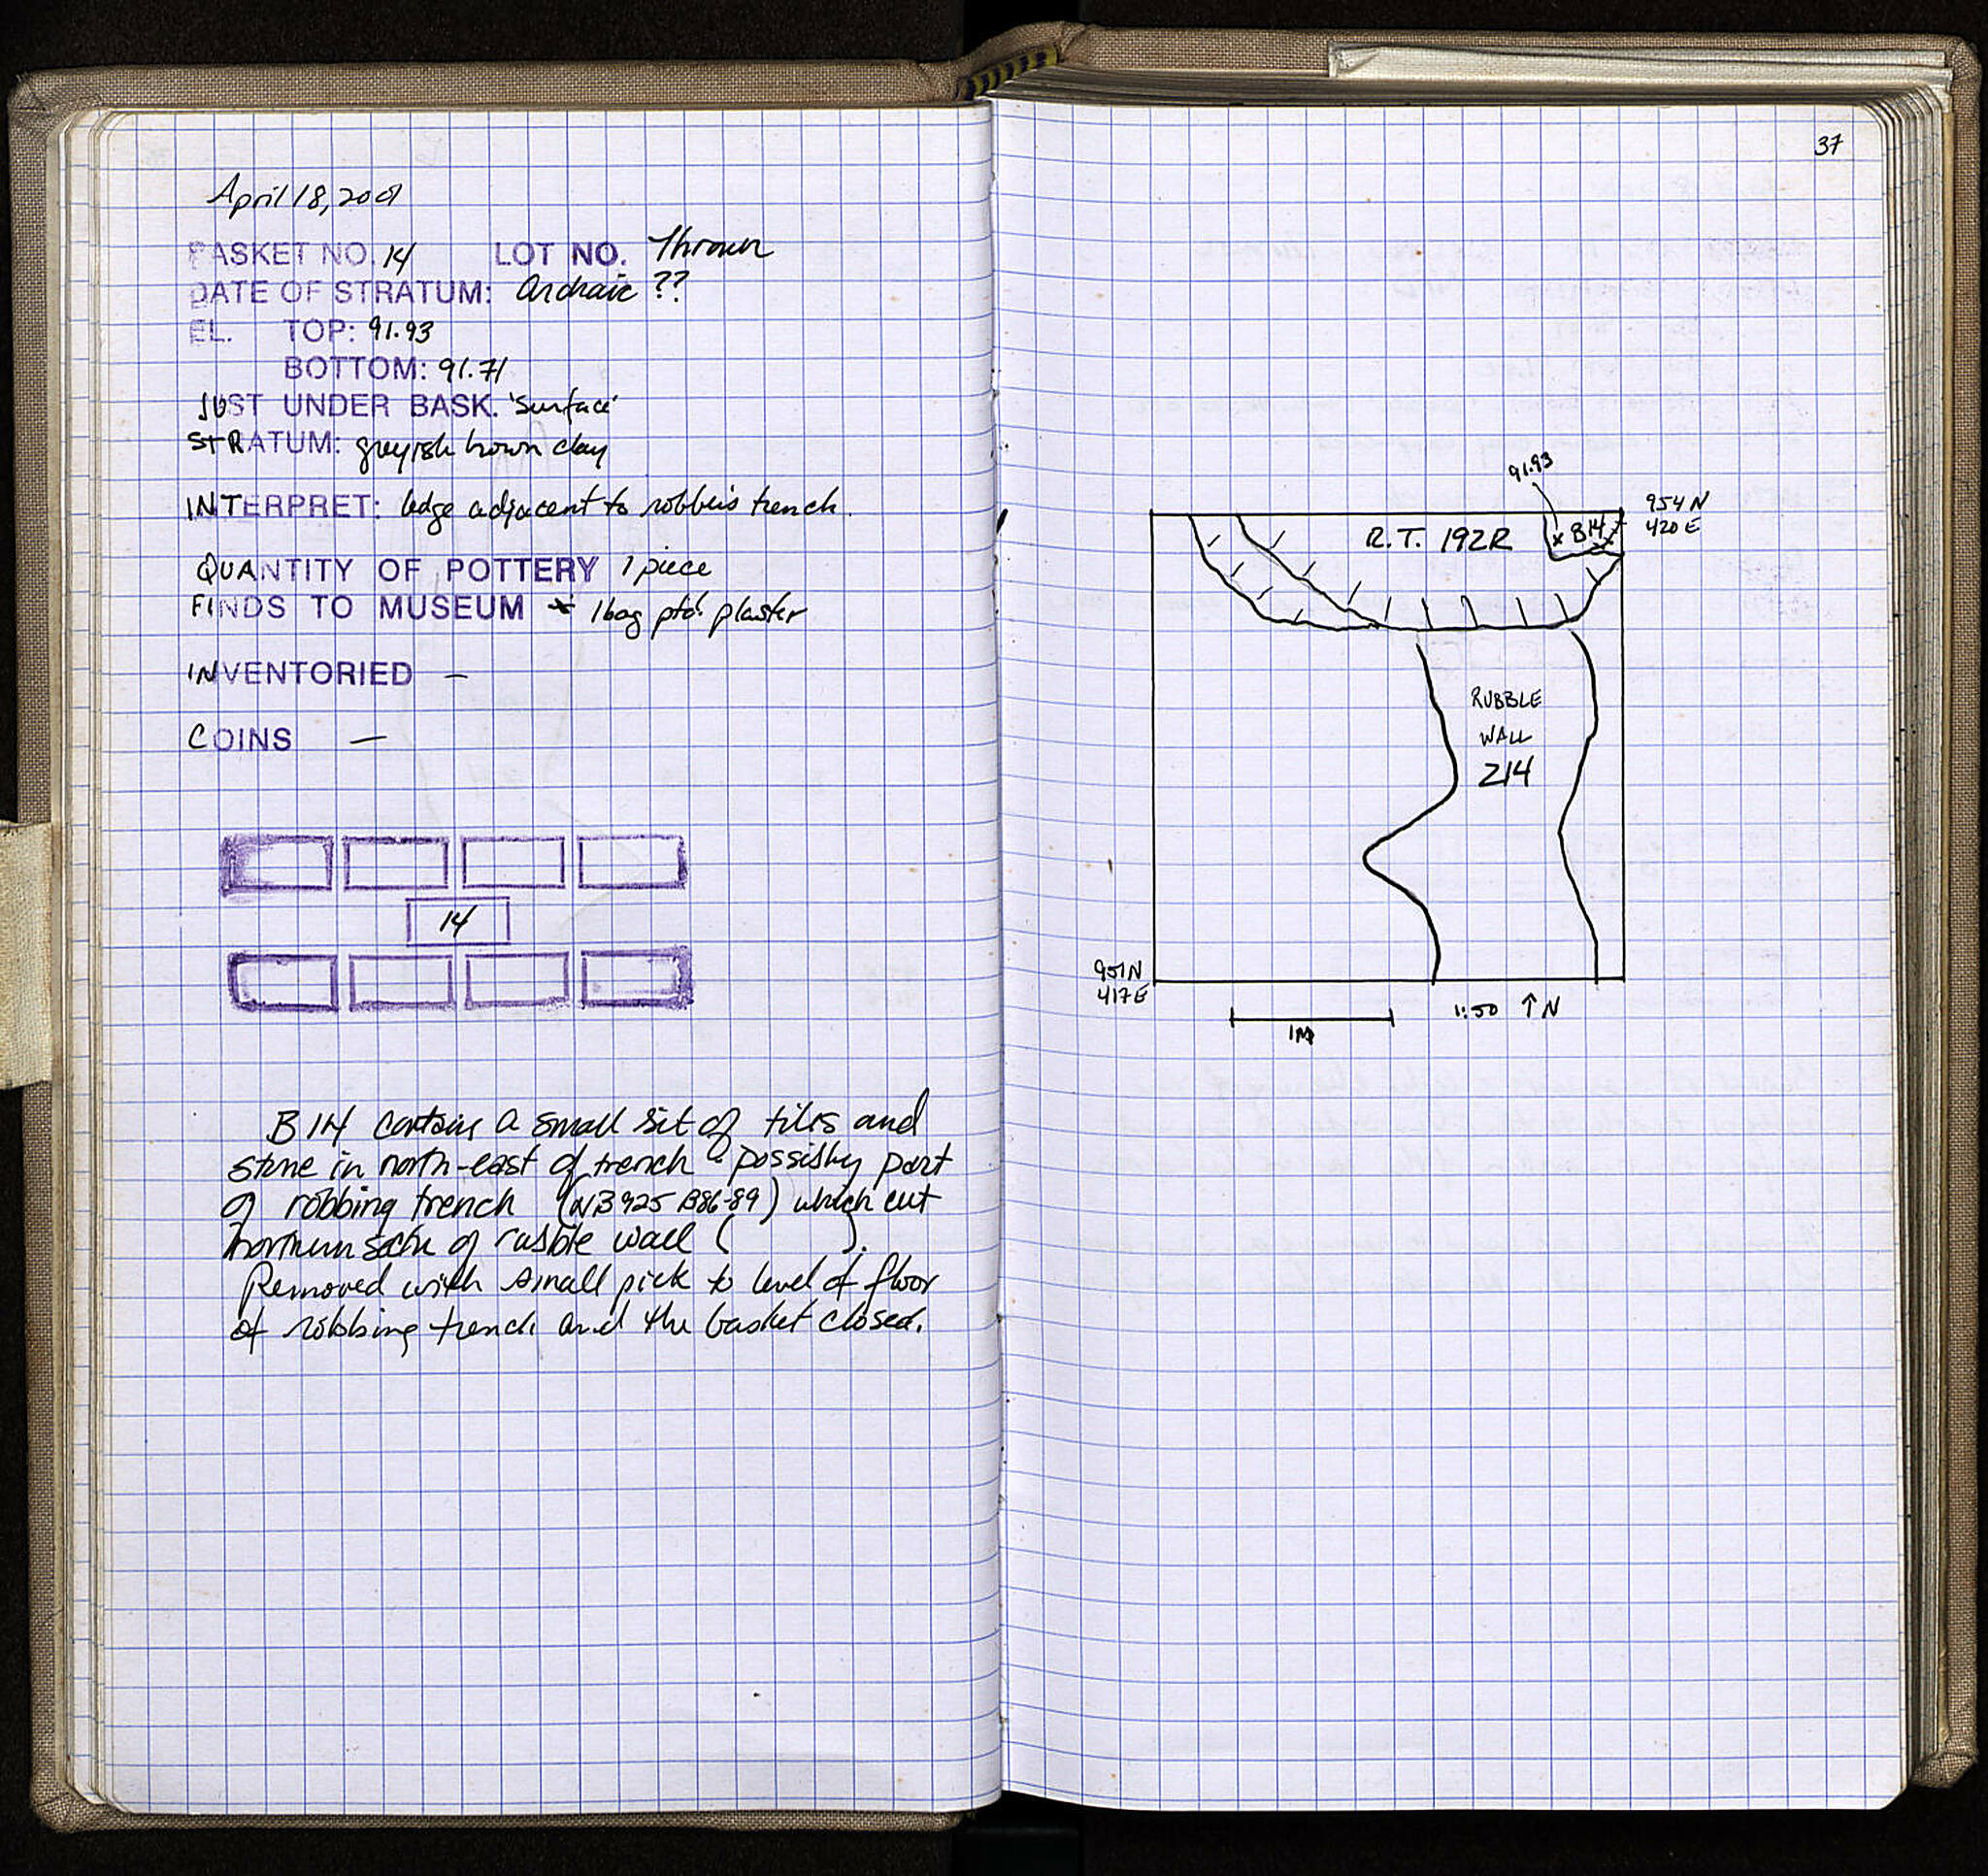 April 18, 2001
BASKET NO. 14 LOT NO. Thrown
DATE OF STRATUM: Archaic ??
EL. TOP: 91.93
BOTTOM: 91.71
JUST UNDER BASK. 'surface'
STRATUM: greyish brown clay
INTERPRET: ledge adjacent to robbers trench.
QUANTITY OF POTTERY 1 piece
FINDS TO MUSEUM * 1 bag ptd. plaster
INVENTORIED —
COINS —
14
B14 contains a small set of tiles and
stone in north-east of trench - possibly part
of robbing trench (NB 925 B86-89) which cut
northern of rubble wall ( ).
Removed with small pick to level of floor
of robbing trench and the basket closed.
37
91.93
954 N
420 E
R.T. 192R
B14
RUBBLE
WALL
214
951N
417E
1:50 ↑N
1M